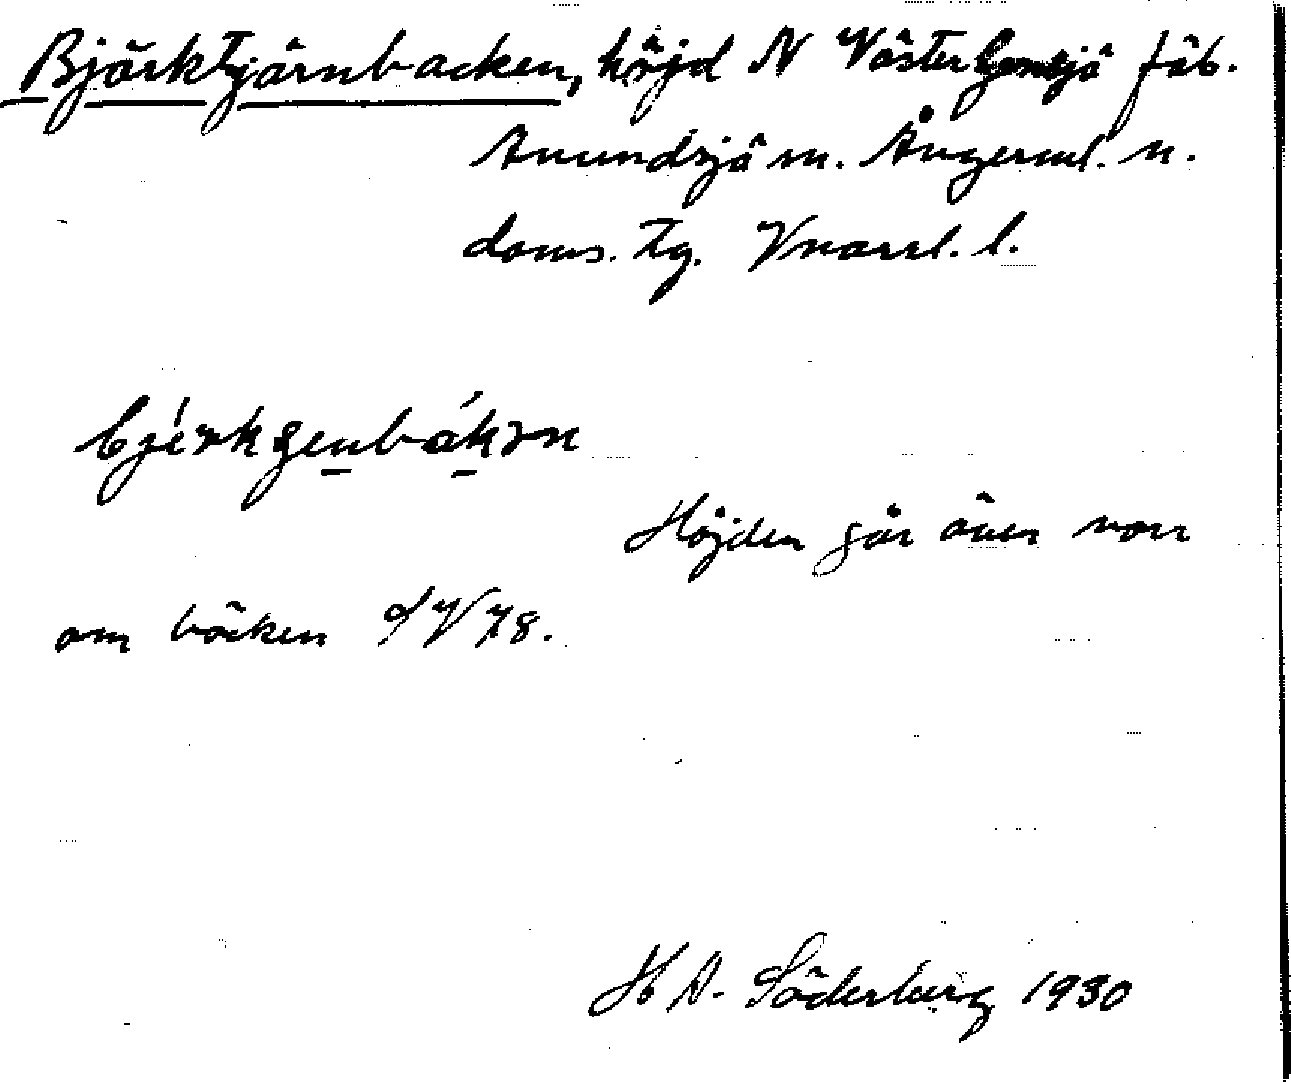 Björktjärnbacken, höjd N Västergensjö fäb.
Anundsjö sn. Ångerml. n.
doms. tg. Vnorrl. l.
bjérkgenbákɜn
Höjden går över norr
om bäcken SV78.
H A. Söderberg 1930